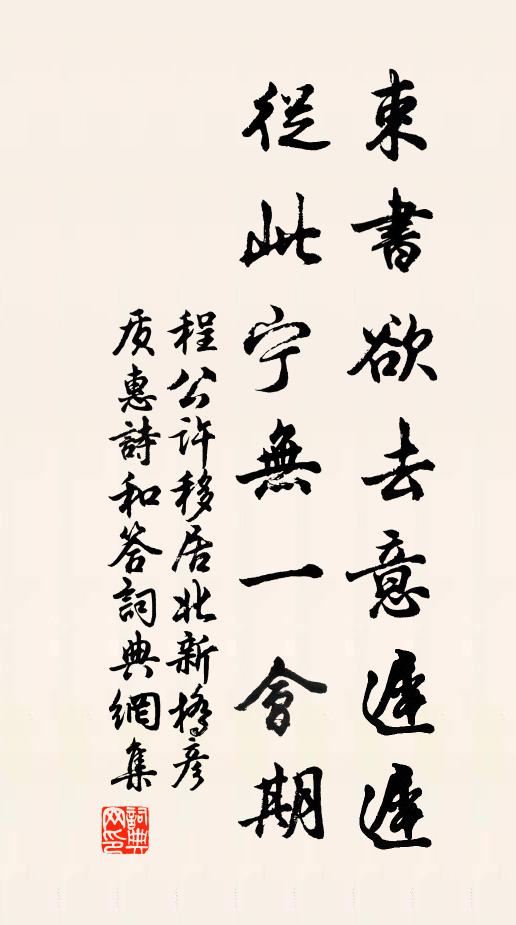 束書欲去意遲遲
從此宁無一會期
程公許移居北新橋彥
质惠詩和答詞典網集
詞典网印